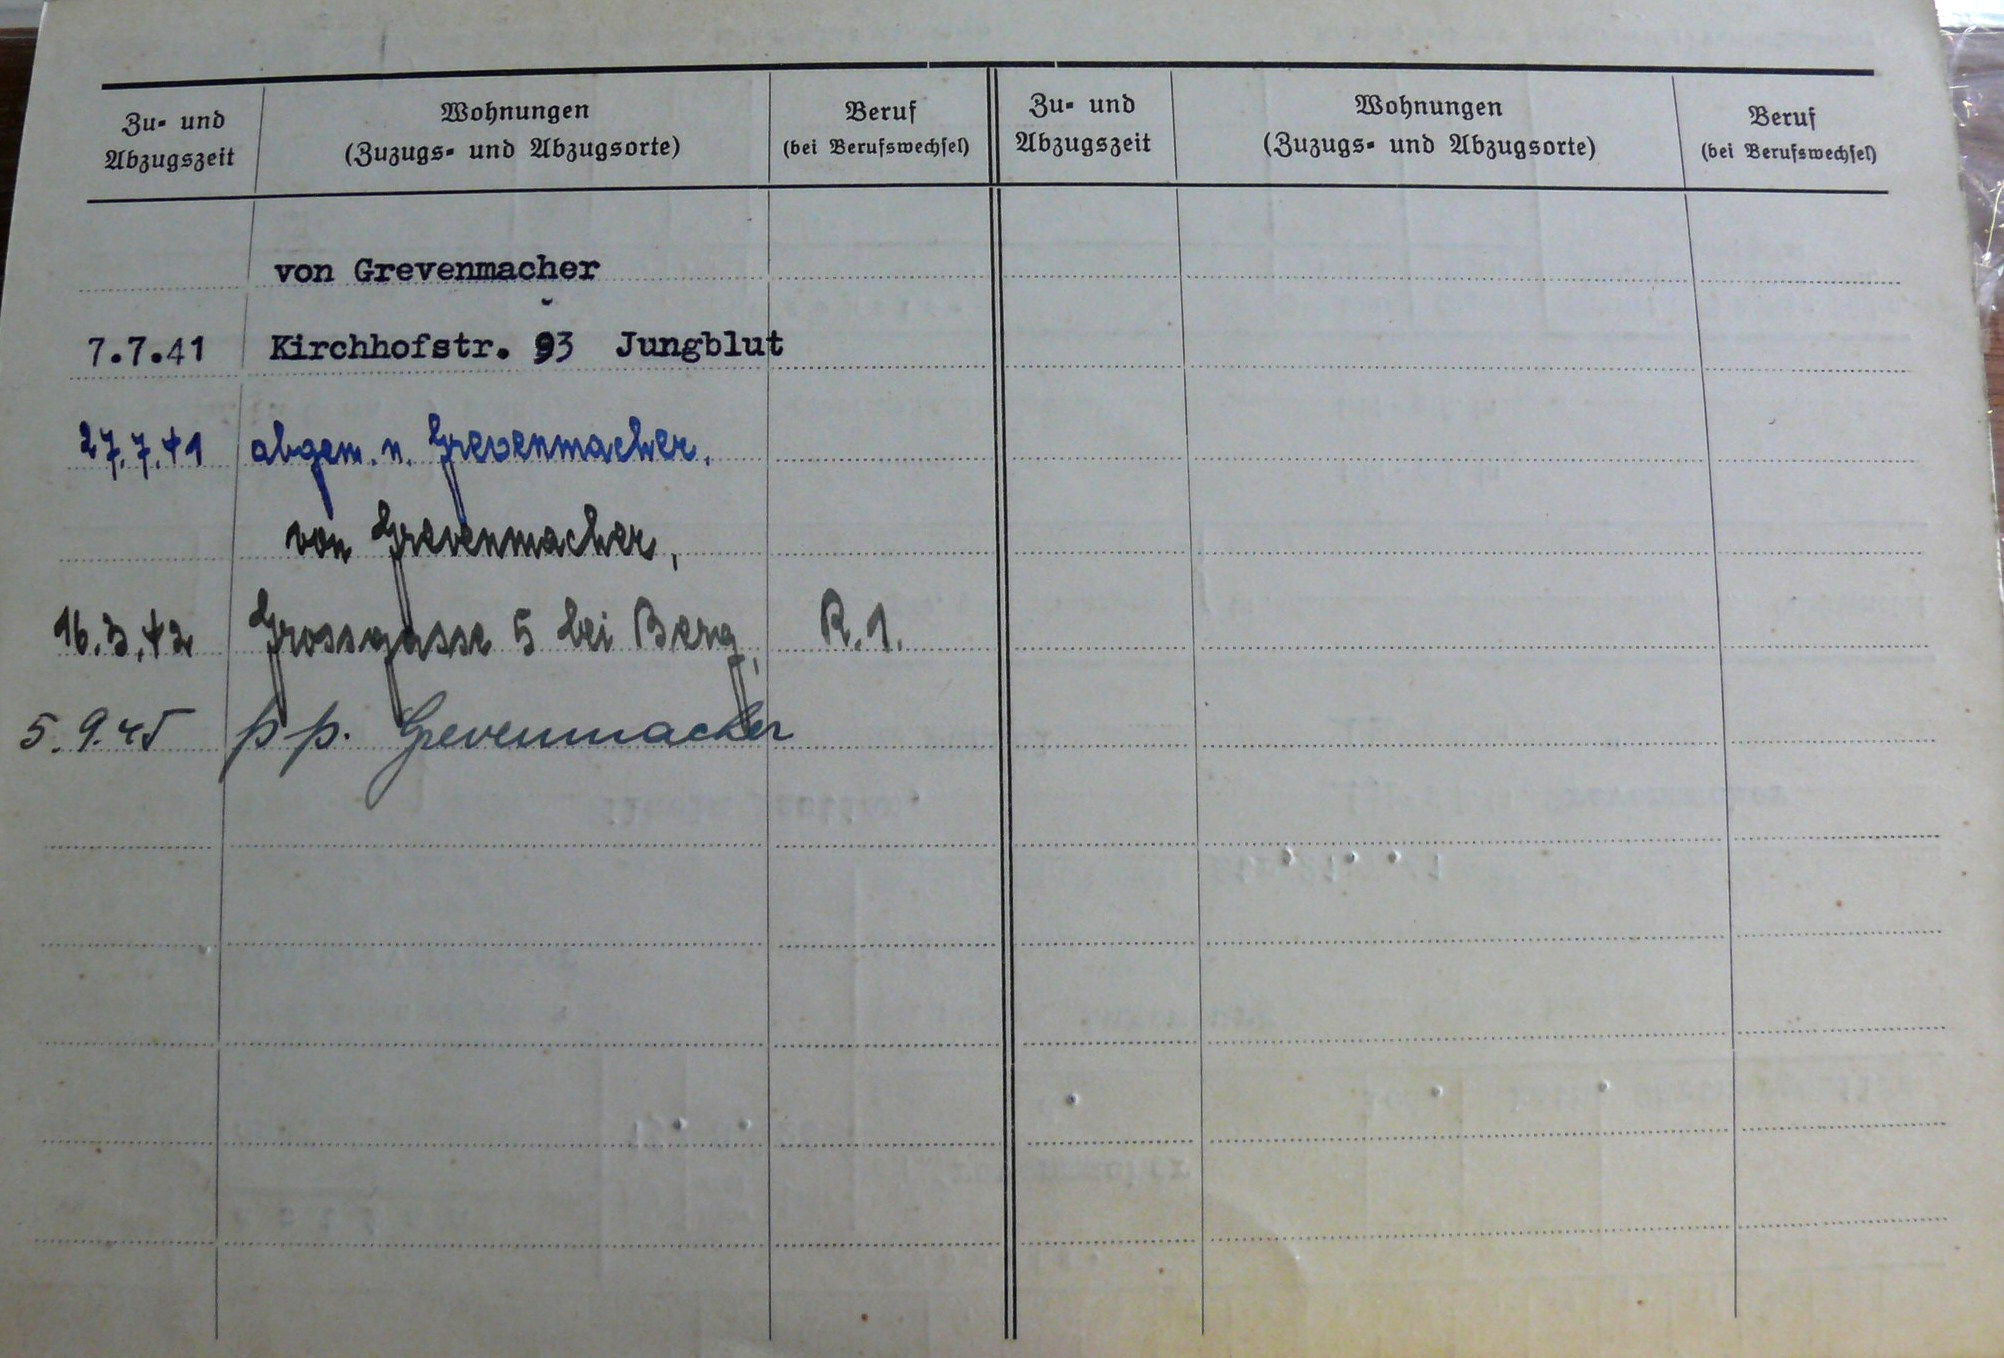 Zu- und Abzugszeit
Wohnungen
(Zuzugs- und Abzugsorte)
Beruf
(bei Berufswechsel)
Zu- und Abzugszeit
Wohnungen
(Zuzugs- und Abzugsorte)
Beruf
(bei Berufswechsel)
von Grevenmacher
7.7.41 Kirchhofstr. 93 Jungblut
27.7.41 abgem. n. Grevenmacher.
von Grevenmacher,
16.3.42 Grossgasse 5 bei Berg, R.1.
5.9.45 pp. Grevenmacher